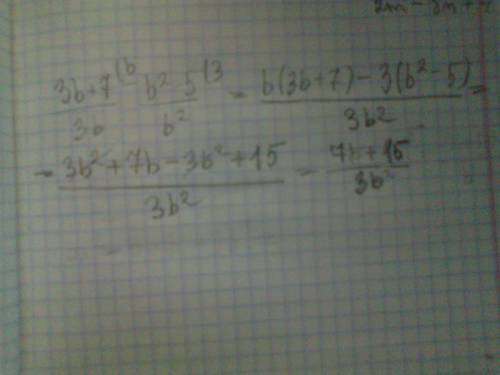 (3b+7)/(3b) (b - (b² - 5)/(b²) (3 = (b(3b+7) - 3(b² - 5))/(3b²) =
= (3b² + 7b - 3b² + 15)/(3b²) = (7b + 15)/(3b²)